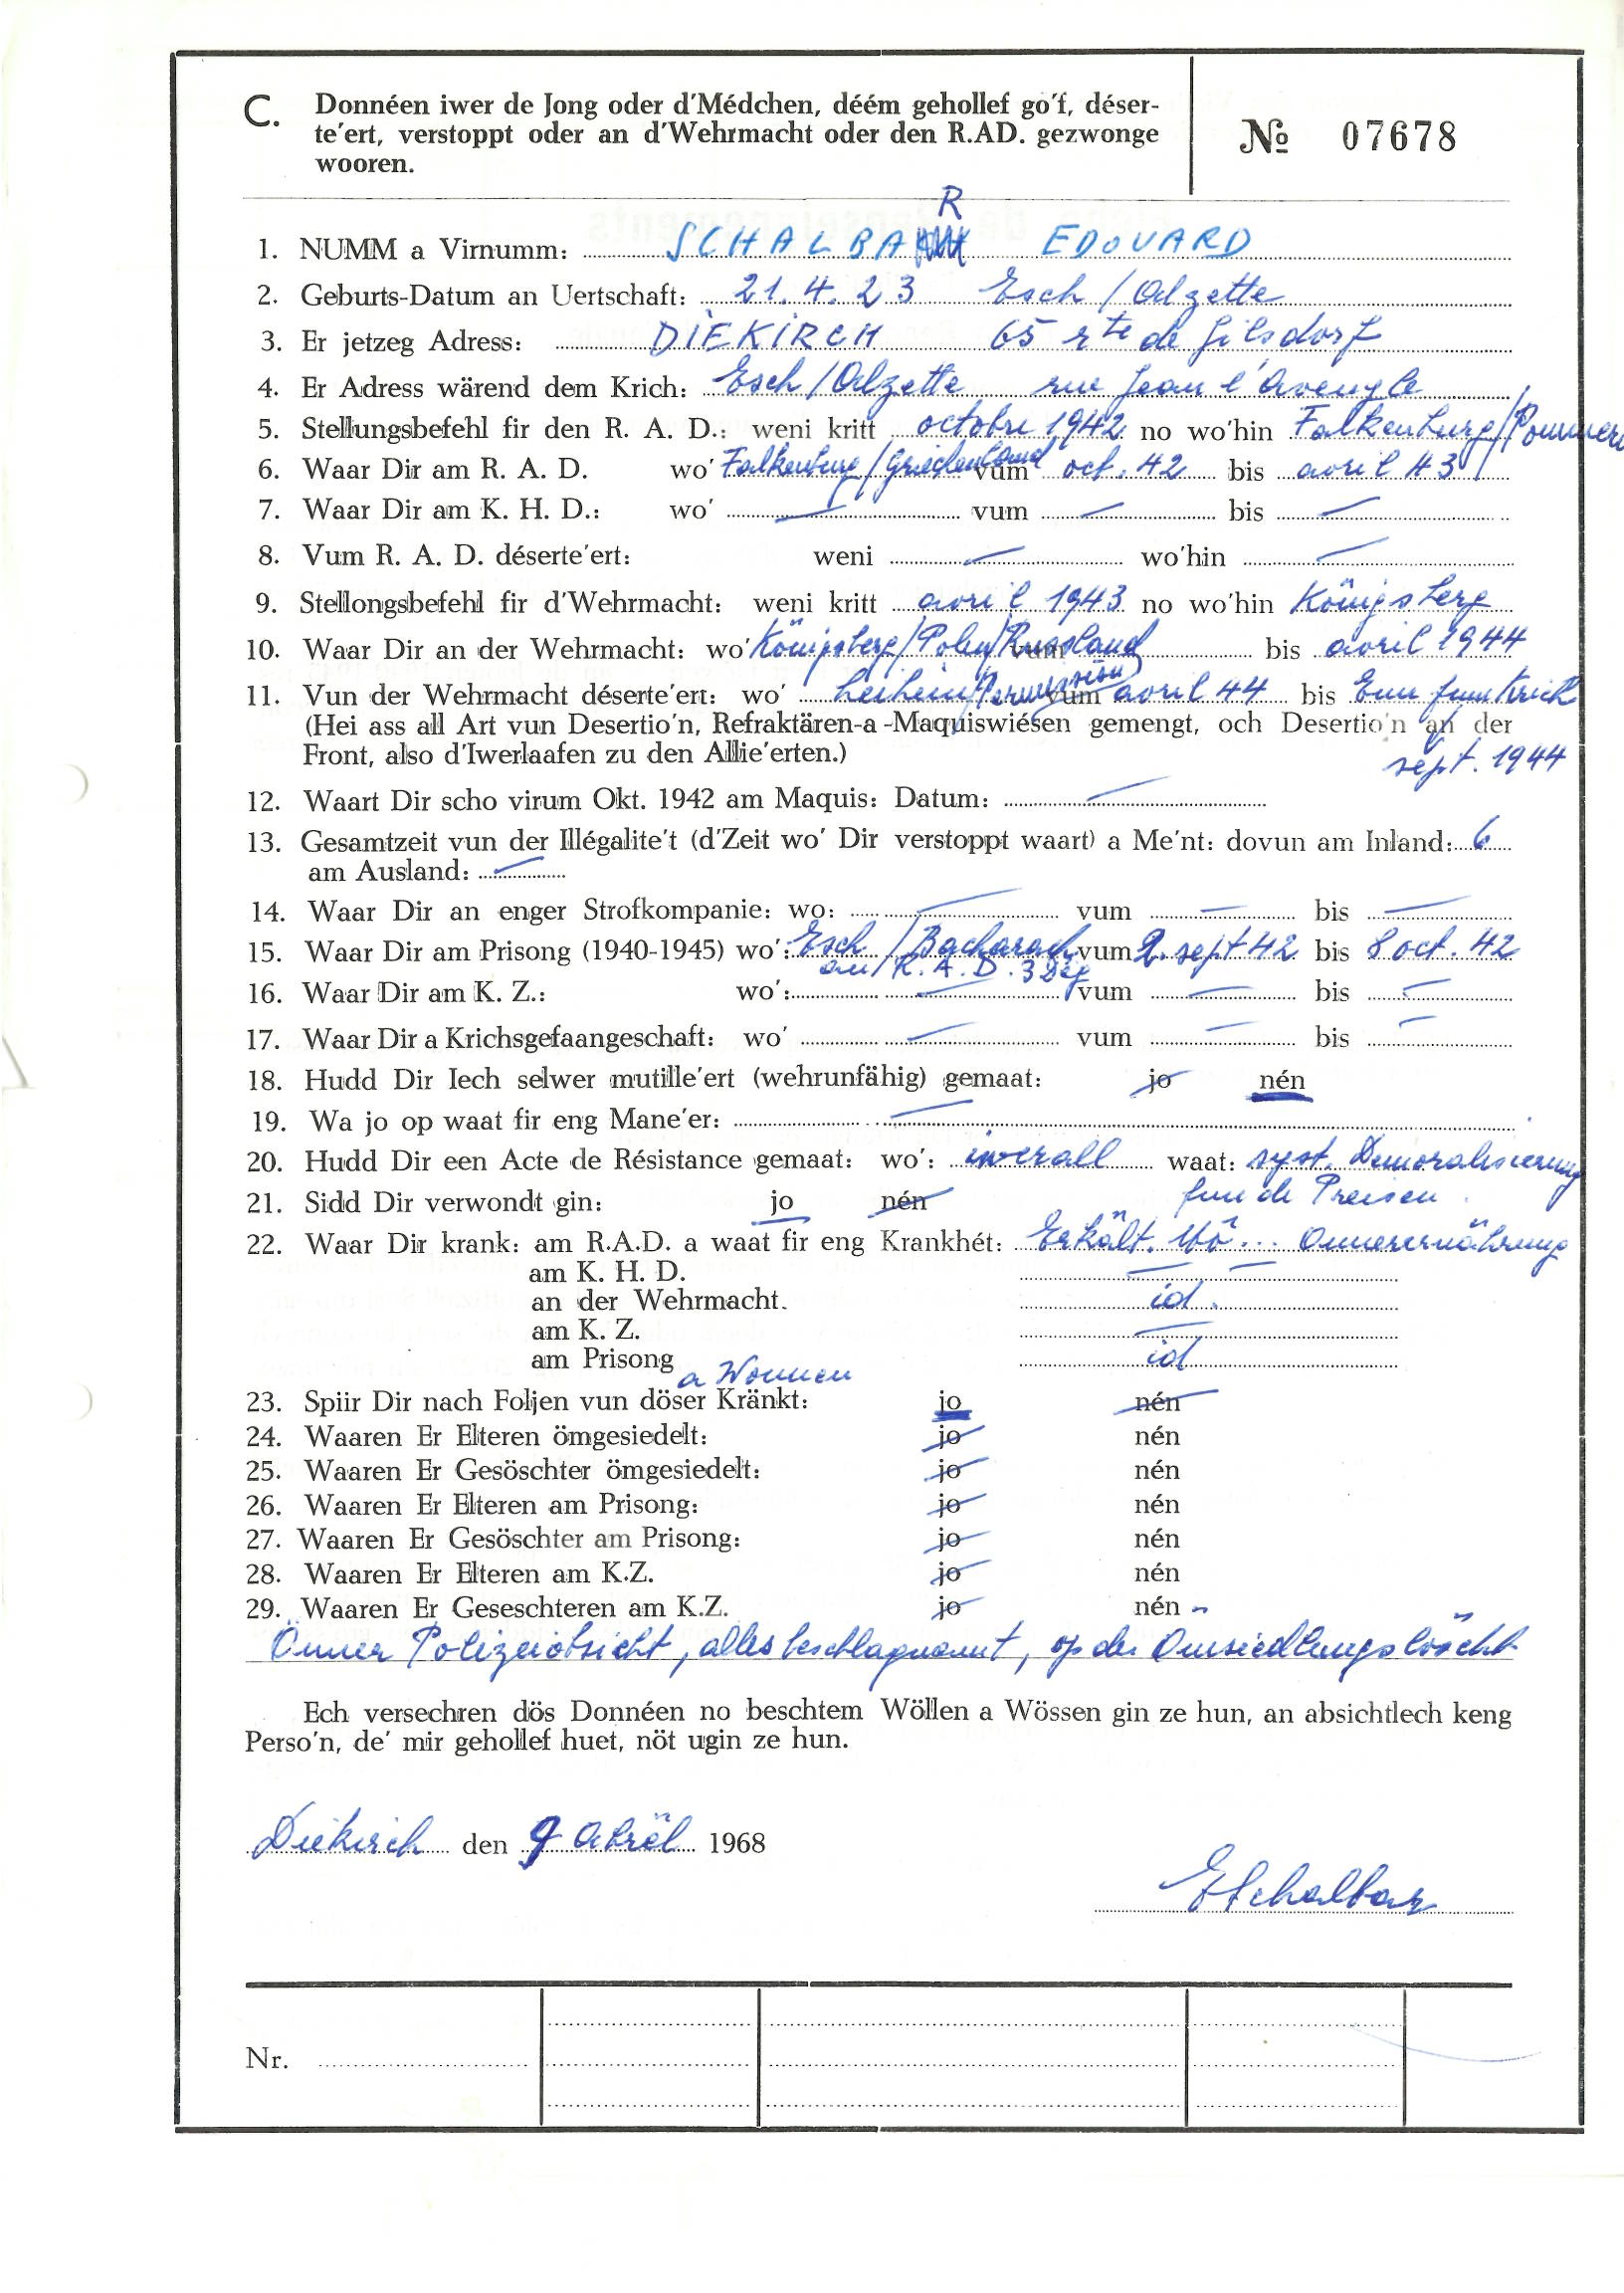 C. Donnéen iwer de Jong oder d'Médchen, déém gehollef go'f, déser-
te'ert, verstoppt oder an d'Wehrmacht oder den R.AD. gezwonge
wooren.
№ 07678
R
1. NUMM a Virnumm: SCHALBA EDOUARD
2. Geburts-Datum an Uertschaft: 21.4.23 Esch/Alzette
3. Er jetzeg Adress: DIEKIRCH 65 rte de Gilsdorf
4. Er Adress wärend dem Krich: Esch/Alzette rue Jean l'Aveugle
5. Stellungsbefehl fir den R. A. D.: weni kritt octobre 1942 no wo'hin Falkenburg/Pommern
6. Waar Dir am R. A. D. wo' Falkenburg/Griechenland vum oct. 42 bis avril 43
7. Waar Dir am K. H. D.: wo' — vum — bis —
8. Vum R. A. D. déserte'ert: weni — wo'hin —
9. Stellongsbefehl fir d'Wehrmacht: weni kritt avril 1943 no wo'hin Königsberg
10. Waar Dir an der Wehrmacht: wo' Königsberg/Polen/Russland vum bis avril 1944
11. Vun der Wehrmacht déserte'ert: wo' heiheim/Permission vum avril 44 bis Enn fum Krich
(Hei ass all Art vun Desertio'n, Refraktären-a-Maquiswiésen gemengt, och Desertio'n an der
Front, also d'Iwerlaafen zu den Allie'erten.) sept. 1944
12. Waart Dir scho virum Okt. 1942 am Maquis: Datum: —
13. Gesamtzeit vun der Illégalite't (d'Zeit wo' Dir verstoppt waart) a Me'nt: dovun am Inland: 6
am Ausland: —
14. Waar Dir an enger Strofkompanie: wo: — vum — bis —
15. Waar Dir am Prisong (1940-1945) wo': Esch/Bacharach vum 2. sept 42 bis 8 oct. 42
am R.A.D. 3 Deg
16. Waar Dir am K. Z.: wo': — vum — bis —
17. Waar Dir a Krichsgefaangeschaft: wo' — vum — bis —
18. Hudd Dir Iech selwer mutille'ert (wehrunfähig) gemaat: jo nén
19. Wa jo op waat fir eng Mane'er: —
20. Hudd Dir een Acte de Résistance gemaat: wo': iwerall waat: syst. Demoralisierung
fun de Preisen
21. Sidd Dir verwondt gin: jo nén
22. Waar Dir krank: am R.A.D. a waat fir eng Krankhét: Erkält. ... Onnerernährung
am K. H. D. — —
an der Wehrmacht. id.
am K. Z. —
am Prisong id
a Wonnen
23. Spiir Dir nach Foljen vun döser Kränkt: jo nén
24. Waaren Er Elteren ömgesiedelt: jo nén
25. Waaren Er Gesöschter ömgesiedelt: jo nén
26. Waaren Er Elteren am Prisong: jo nén
27. Waaren Er Gesöschter am Prisong: jo nén
28. Waaren Er Elteren am K.Z. jo nén
29. Waaren Er Geseschteren am K.Z. jo nén
Önner Polizeiobsicht, alles beschlagnamt, op der Omsiedlungslöscht
Ech versechren dös Donnéen no beschtem Wöllen a Wössen gin ze hun, an absichtlech keng
Perso'n, de' mir gehollef huet, nöt ugin ze hun.
Diekirch den 9 Abrël 1968
ESchalbar
Nr.